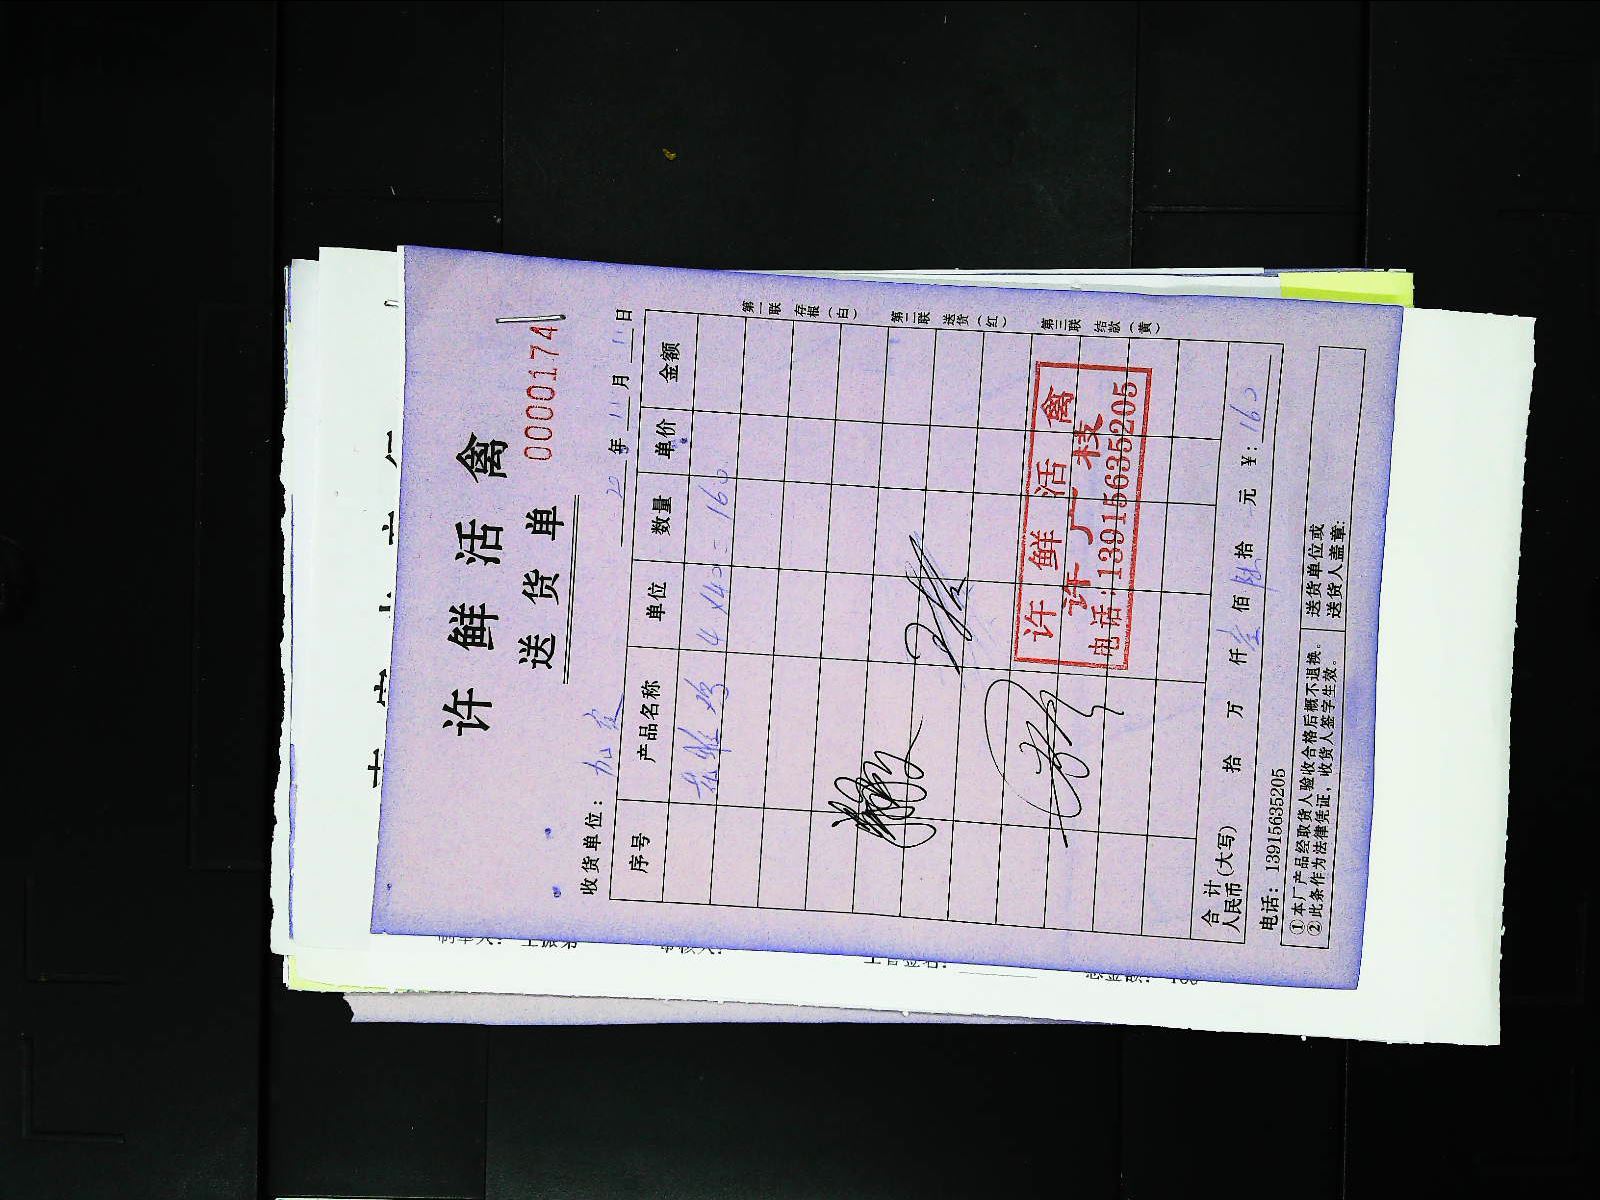 许鲜活禽
送货单
0000174
收货单位：
20年11月11日
序号 产品名称 单位 数量 单价 金额
4×40=160
第一联 存根（白）
第二联 送货（红）
第三联 结款（黄）
许鲜活禽
许广枝
电话:13915635205
合计(大写)
人民币 拾 万 仟 壹 佰 陆 拾 元 ￥: 160
电话：13915635205
①本厂产品经取货人验收合格后概不退换。
②此条作为法律凭证，收货人签字生效。
送货单位或
送货人盖章: